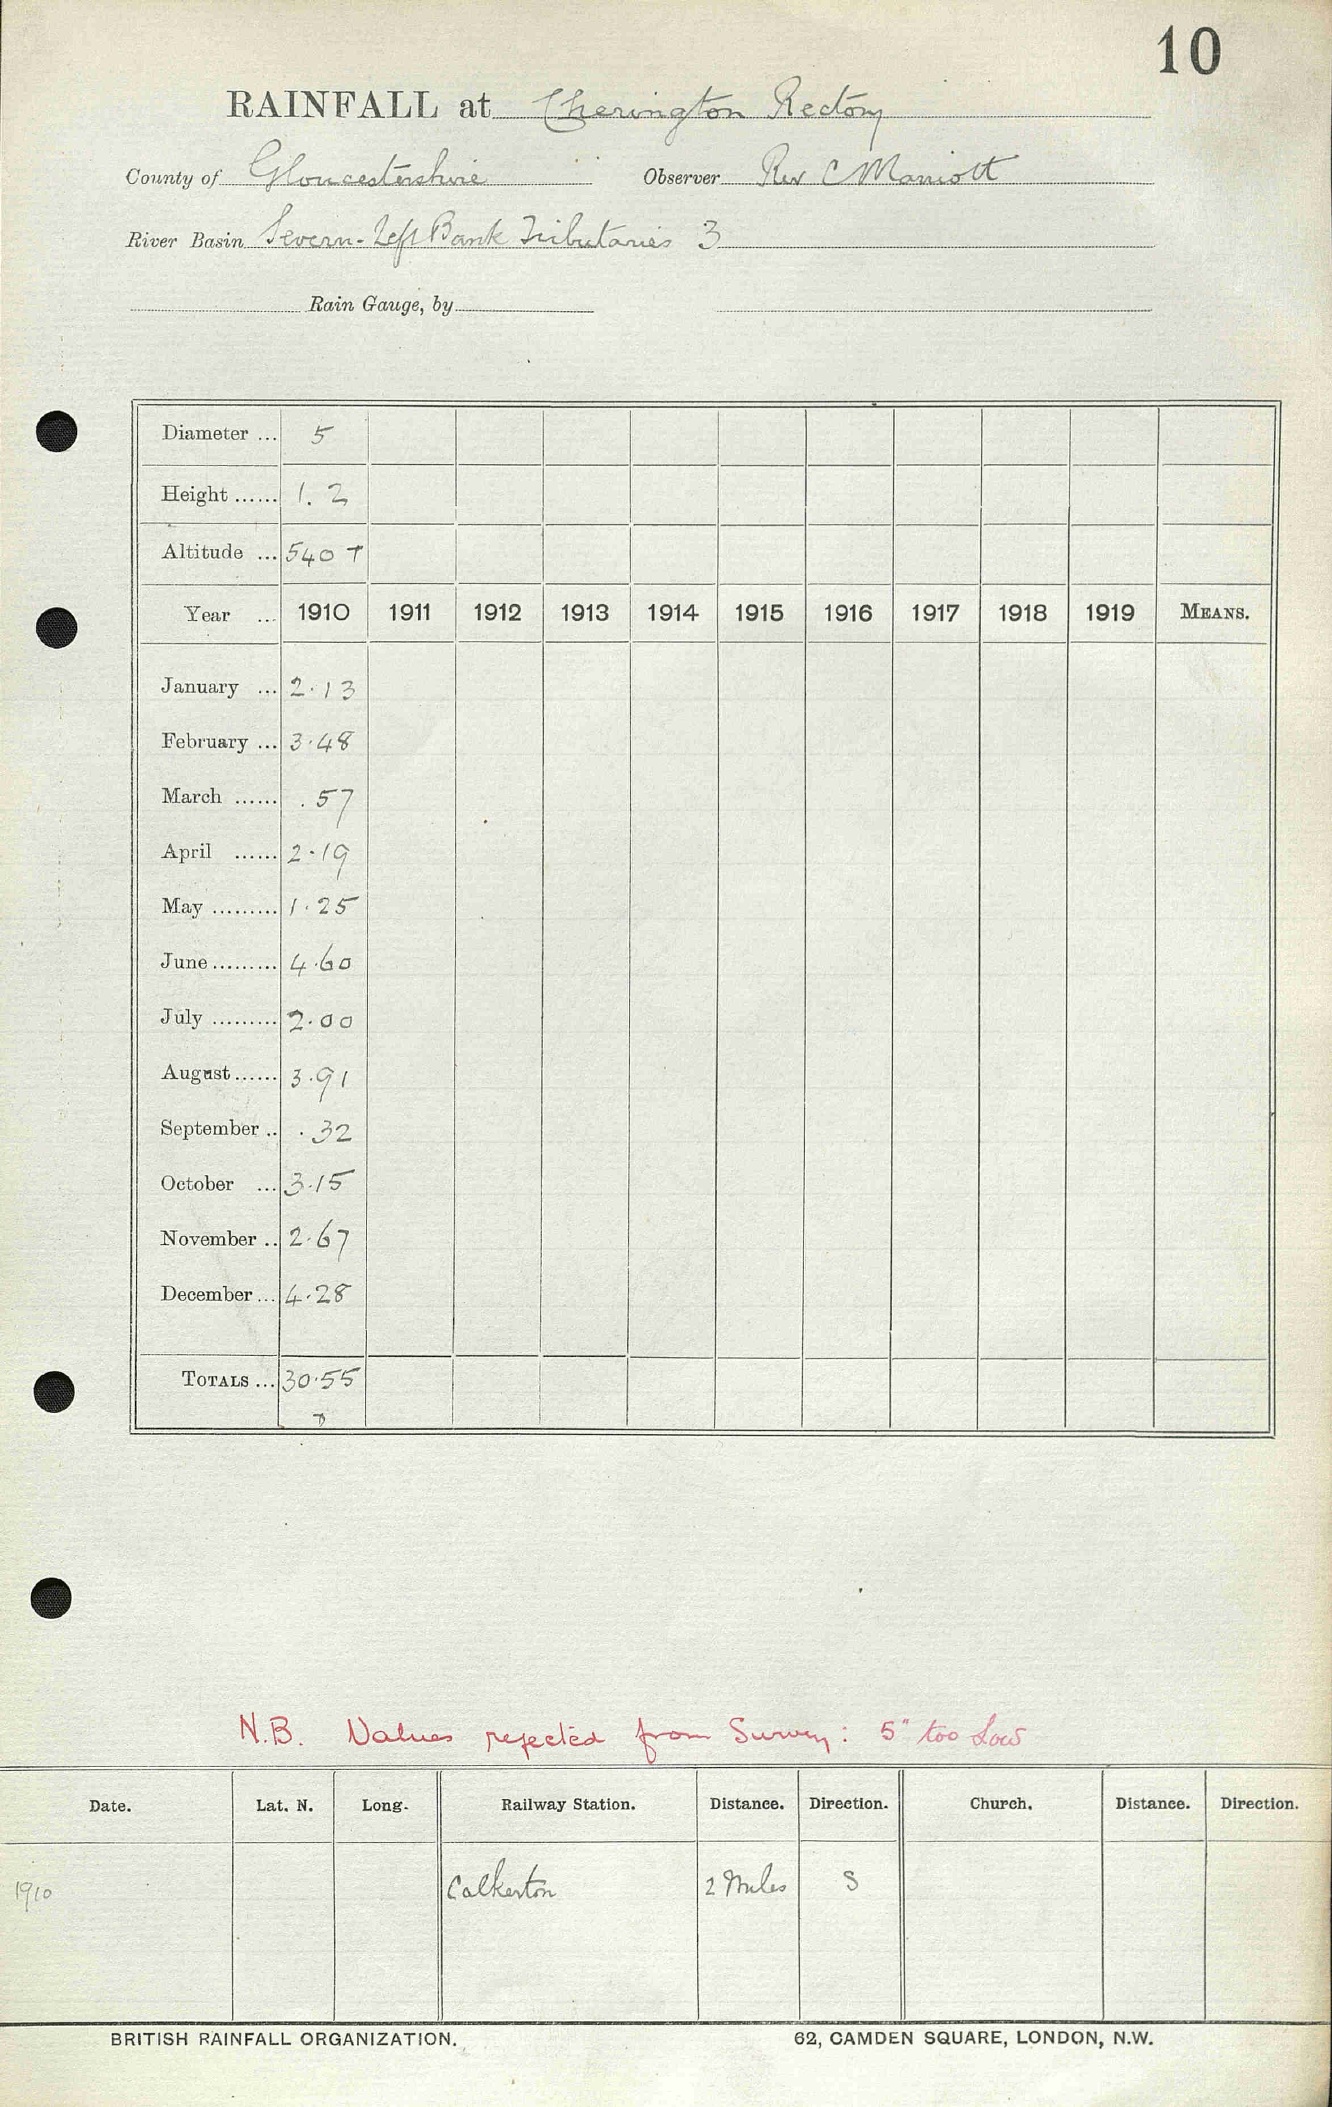 10
RAINFALL at Cherington Rectory
County of Gloucestershire Observer Rev C Marriott
River Basin Severn-Left Bank Tributaries 3
Rain Gauge, by
Diameter ... 5
Height ...... 1.2
Altitude ... 540 T
Year ... 1910 1911 1912 1913 1914 1915 1916 1917 1918 1919 MEANS.
January ... 2.13
February ... 3.48
March ...... .57
April ...... 2.19
May ......... 1.25
June ......... 4.60
July ......... 2.00
August ...... 3.91
September .. .32
October ... 3.15
November .. 2.67
December ... 4.28
TOTALS ... 30.55
N.B. Values rejected from Survey: 5" too low
Date. Lat. N. Long. Railway Station. Distance. Direction. Church. Distance. Direction.
1910 Calkerton 2 Miles S
BRITISH RAINFALL ORGANIZATION. 62, CAMDEN SQUARE, LONDON, N.W.